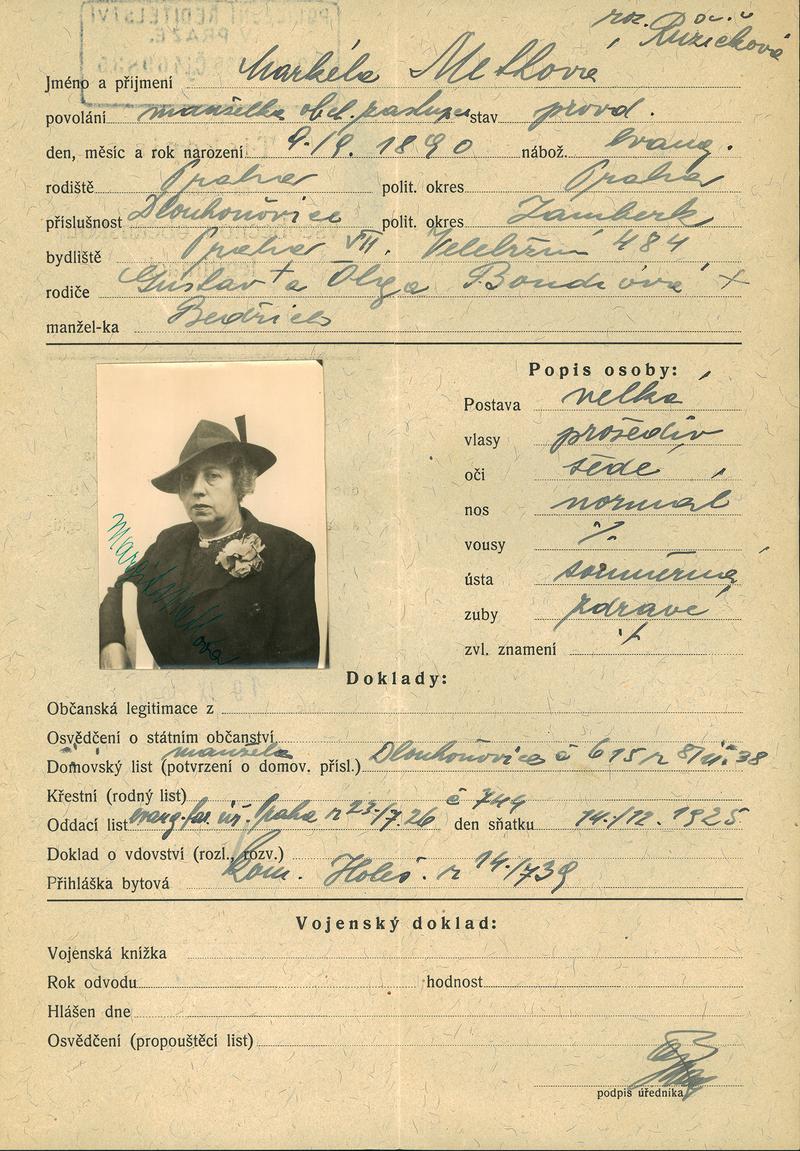 roz. Růžičková
Jméno a příjmení Markéta Metlová
povolání manželka obch. zástupce stav provd.
den, měsíc a rok narození 9./9. 1890 nábož. evang.
rodiště Praha polit. okres Praha
příslušnost Dlouhoňovice polit. okres Žamberk
bydliště Praha VII. Veletržní 484
rodiče Gustav + a Olga Bondiová +
manžel-ka Bedřich
Popis osoby:
Postava velká
vlasy prošediv
oči šedé
nos normal
vousy ·/.
ústa souměrná
zuby zdravé
zvl. znamení ·/.
Doklady:
Občanská legitimace z
Osvědčení o státním občanství
manžela
Domovský list (potvrzení o domov. přísl.) Dlouhoňovice č 615 z 38
Křestní (rodný list)
č 744
Oddací list evang. far. úř. Praha z 23./7. 26 den sňatku 14./12. 1925
Doklad o vdovství (rozl., rozv.)
Přihláška bytová kom. Holeš. z 14./739
Vojenský doklad:
Vojenská knížka
Rok odvodu hodnost
Hlášen dne
Osvědčení (propouštěcí list)
podpis úředníka